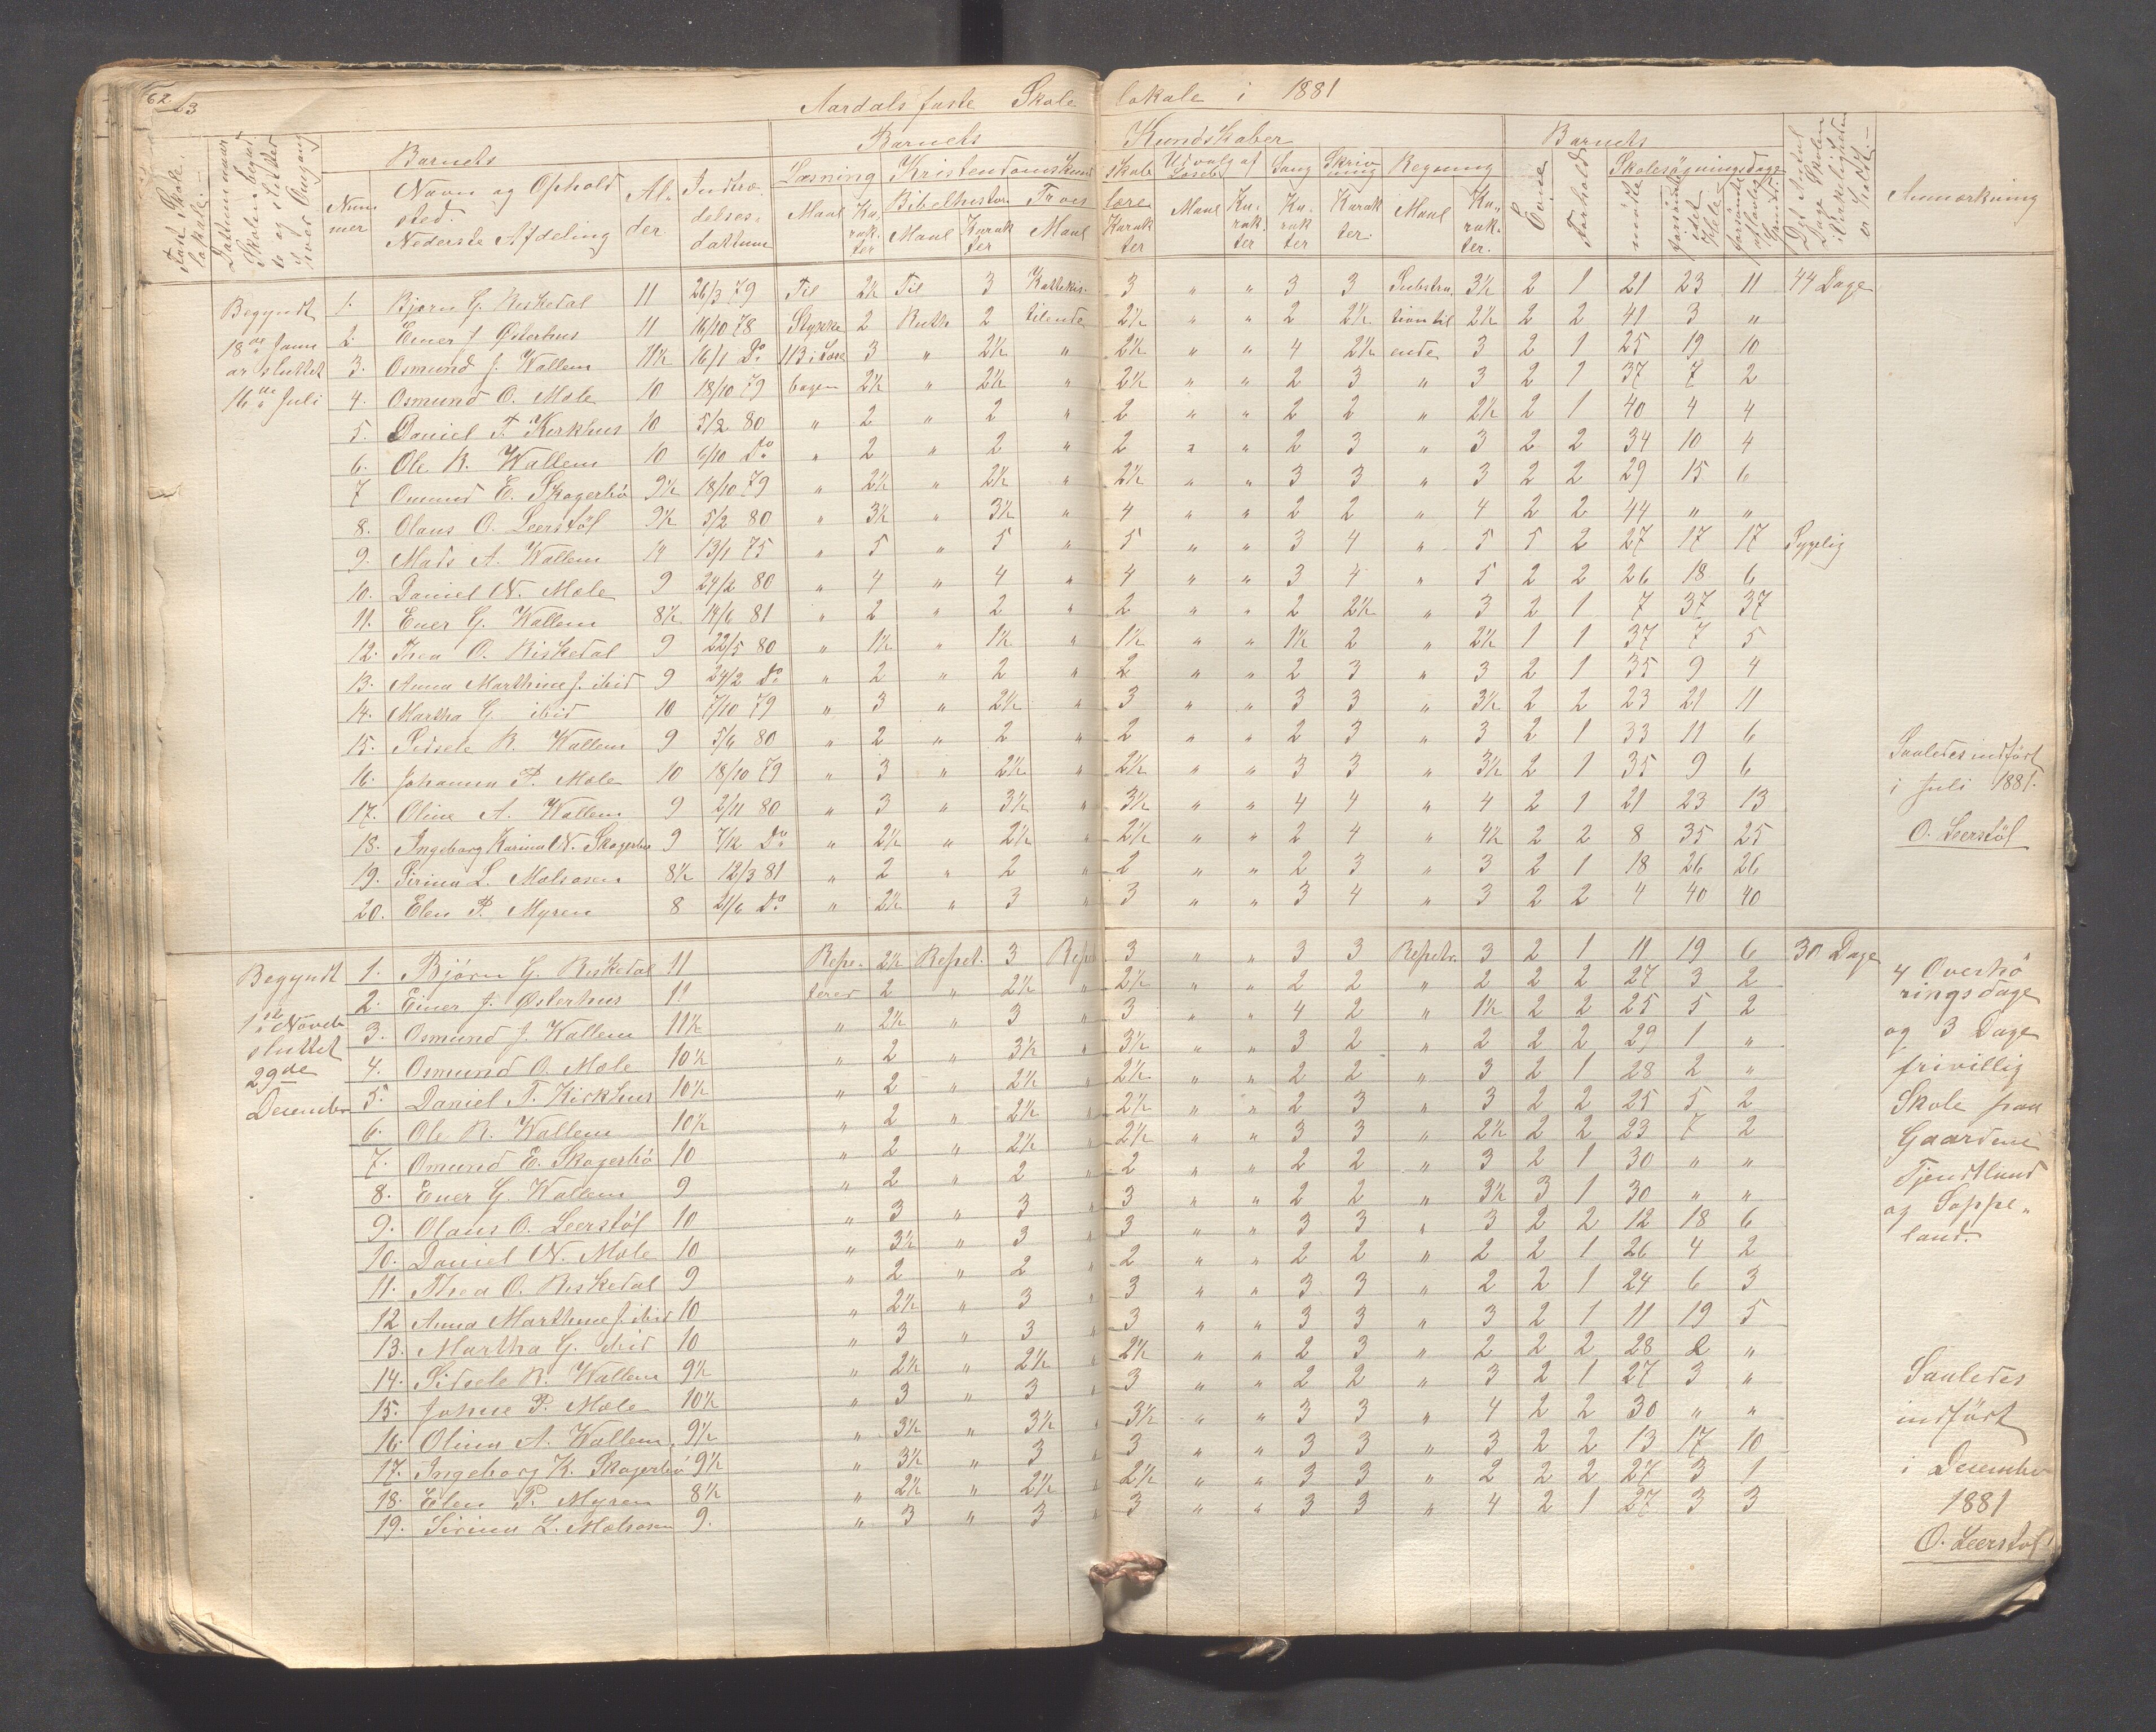 62. 63
Aardals faste Skole lokale i 1881
Barnets Barnets Kundskaber Barnets
Fast Skole lokale. Datum naar Skolen begynd te og sluttet hver Omgang Nummer Navn og Ophold sted. Nederste Afdeling Alder. Indtrædelses datum Læsning Kristendomskund Skab Udvalg af Læseb Sang Skrivning Regning Evne Forhold Skolesøgningsdage Det Antal Dage Skolen i Virkeligheden er holdt. Anmærkning
Maal Karakter Bibelhistor Maal Karakter Troes Maal lære Karakter Maal Karakter Karakter Karakter Maal Karakter mødte forsømte i det Hele
Begyndt 1. Bjørn G. Riskedal 11 26/3 79 Til 2½ Til 3 Kattekis- 3 " " 3 3 Substra, 3½ 2 1 21 23 11 44 Dage
18de Janu 2. Einer J Østerhus 11 16/10 78 Stykke 2 Ruth 2 tilende 2½ " " 2 2½ tion til 2½ 2 2 41 3 "
ar sluttet 3. Osmund J. Wallem 11½ 16/1 Do 113 i Læse 3 " 2½ " 2½ " " 4 2½ ende 3 2 1 25 19 10
16de Juli 4. Osmund O. Mæle 10 18/10 79 bogen 2½ " 2½ " 2½ " " 2 3 " 3 2 1 37 7 2
5. Daniel T. Kirkhus 10 5/2 80 " 2 " 2 " 2 " " 2 2 " 2½ 2 1 40 4 4
6. Ole R. Wallem 10 6/10 Do " 2 " 2 " 2 " " 2 3 " 3 2 2 34 10 4
7 Omund E. Skogerbø 9½ 18/10 79 " 2½ " 2½ " 2½ " " 3 3 " 3 2 2 29 15 6
8. Olaus O. Leerstøl 9½ 5/2 80 " 3½ " 3½ " 4 " " 2 2 " 4 2 2 44 " "
9. Mads A. Wallem 14 13/1 75 " 5 " 5 " 5 " " 3 4 " 5 5 2 27 17 17 Sygelig
10. Daniel N. Mæle 9 24/2 80 " 4 " 4 " 4 " " 3 4 " 5 2 2 26 18 6
11. Ener G. Wallem 8½ 14/6 81 " 2 " 2 " 2 " " 2 2½ " 3 2 1 7 37 37
12. Thea O. Riskedal 9 22/5 80 " 1½ " 1½ " 1½ " " 1½ 2 " 2½ 1 1 37 7 5
13. Anna Marthine J. ibid 9 24/2 Do " 2 " 2 " 2 " " 2 3 " 3 2 1 35 9 4
14. Martha G. ibid 10 7/10 79 " 3 " 2½ " 3 " " 3 3 " 3½ 2 2 23 21 11
15. Sidsele R. Wallem 9 5/6 80 " 2 " 2 " 2 " " 2 3 " 3 2 1 33 11 6 Saaledes indført
16. Johanna P. Mæle 10 18/10 79 " 3 " 2½ " 2½ " " 3 3 " 3½ 2 1 35 9 6 i Juli 1881.
17. Oline A. Wallem 9 2/11 80 " 3 " 3½ " 3½ " " 4 4 " 4 2 1 21 23 13
18. Ingeborg Karina N. Skogerbø 9 7/12 Do " 2½ " 2½ " 2½ " " 2 4 " 4½ 2 2 8 35 25 O. Leerstøl
19. Sirina L. Mælsosen 8½ 12/3 81 " 2 " 2 " 2 " " 2 3 " 3 2 1 18 26 26
20. Elen P. Myren 8 21/6 Do " 2½ " 3 " 3 " " 3 4 " 3 2 2 4 40 40
Begyndt 1. Bjørn G. Riskedal 11 Repe- 2½ Repet. 3 Repet 3 " " 3 3 Repetr. 3 2 1 11 19 6 30 Dage 4 Overhø
2. Einer J. Østerhus 11 terer 2 " 2½ " 2½ " " 2 2 " 2 2 2 27 3 2 ringsdage
1ste Novebr 3. Osmund J. Wallem 11½ " 2½ " 3 " 3 " " 4 2 " 1½ 2 2 25 5 2 og 3 Dage
sluttet 4. Osmund O. Mæle 10½ " 2 " 3½ " 3½ " " 3 2 " 2 2 2 29 1 " frivillig
29de Desember 5. Daniel T. Kirkhus 10½ " 2 " 2½ " 2½ " " 2 2 " 3 2 1 28 2 " Skole paa
6. Ole R. Wallem 10½ " 2 " 2½ " 2½ " " 2 3 " 3 2 2 25 5 2 Gaardene
7. Omund E. Skogerbø 10 " 2 " 2½ " 2½ " " 3 3 " 2½ 2 2 23 7 2 Tjendtland
8. Ener G. Wallem 9 " 2 " 2 " 2 " " 2 2 " 3 2 1 30 " " og Soppe-
9. Olaus O. Leerstøl 10 " 3 " 3 " 3 " " 2 2 " 3½ 3 1 30 " " land.
10. Daniel N. Mæle 10 " 3½ " 3 " 3 " " 3 3 " 3 2 2 12 18 6
11. Thea O. Riskedal 9 " 2 " 2 " 2 " " 2 2 " 2 2 1 26 4 2
12 Anna Marthine J. ibid 10 " 2½ " 3 " 3 " " 3 3 " 2 2 1 24 6 3
13. Martha G. ibid 10 " 3 " 3 " 3 " " 3 3 " 3 2 1 11 19 5
14. Sidsele R. Wallem 9½ " 2½ " 2½ " 2½ " " 2 3 " 2 2 2 28 2 " Saaledes
15. Johne P. Mæle 10½ " 3 " 3 " 3 " " 2 2 " 3 2 1 27 3 " indført
16. Olina A. Wallem 9½ " 3½ " 3½ " 3½ " " 3 3 " 4 2 2 30 " " i Desember
17. Ingeborg K. Skogerbø 9½ " 3½ " 3 " 3 " " 3 3 " 3 2 2 13 17 10 1881
18. Elen P. Myren 8½ " 2½ " 2½ " 2½ " " 3 3 " 2 2 2 27 3 1 O. Leerstøl
19. Sirina L. Mælsosen 9. " 3 " 3 " 3 " " 3 3 " 4 2 1 27 3 3